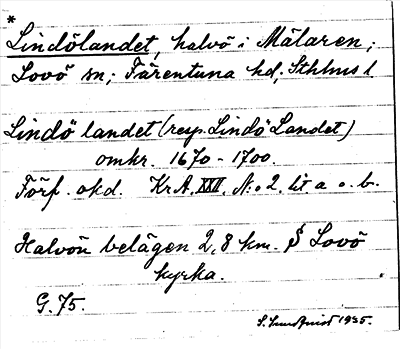 *
Lindölandet, halvö i Mälaren;
Lovö sn; Färentuna hd; Sthlms l
Lindö landet (resp. Lindö Landet)
omkr. 1670-1700.
Förf. okd. Kr.A. XXVI. N:o 2. lit a o. b.
Halvön belägen 2,8 km. S Lovö
kyrka.
G. 75.
S. Sundqvist 1935.